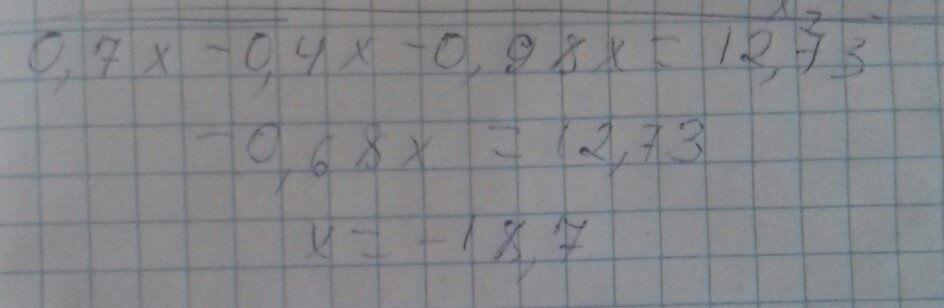 0,7x - 0,4x - 0,98x = 12,73
-0,68x = 12,73
x = -18,7